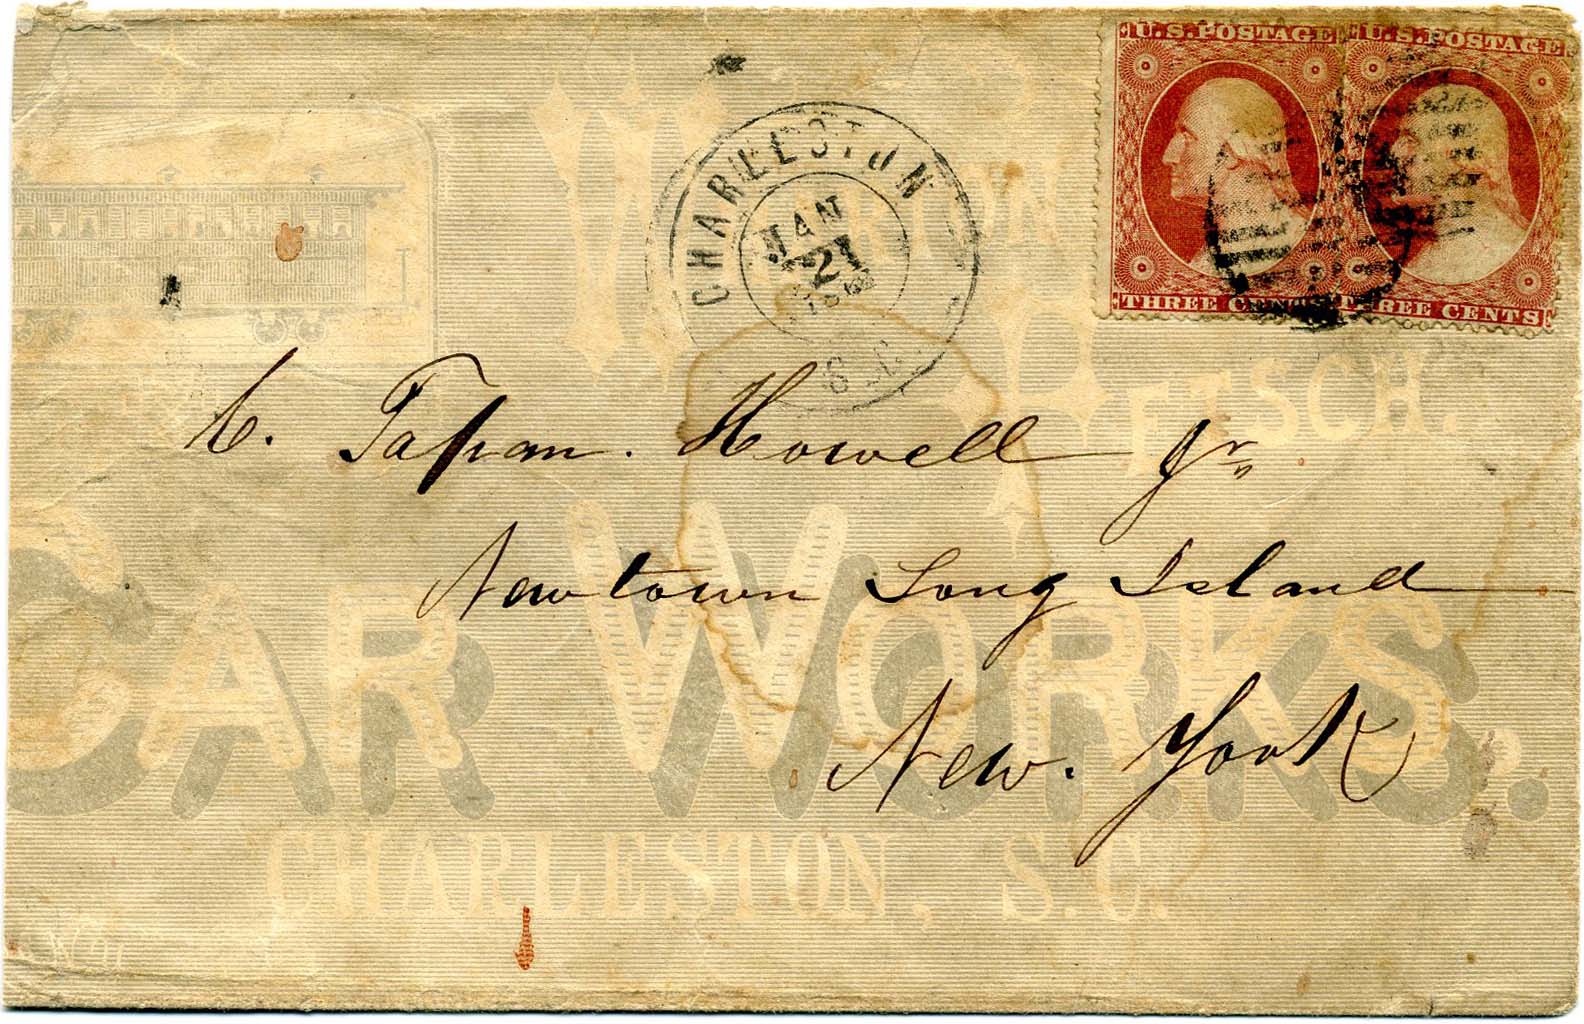 U.S. POSTAGE U.S. POSTAGE
THREE CENTS THREE CENTS
CHARLESTON
JAN
21
S.C.
WHARTON
&
PETSCH.
CAR WORKS.
CHARLESTON, S.C.
C. Tapan. Howell Jr
Newtown Long Island
New. York